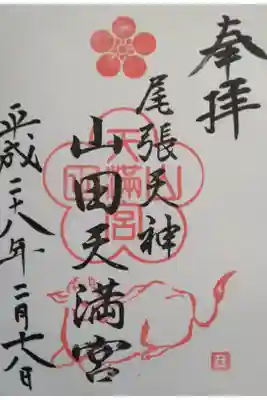 奉拝
尾張天神
山田天満宮
平成二十八年二月十八日
山田天満宮